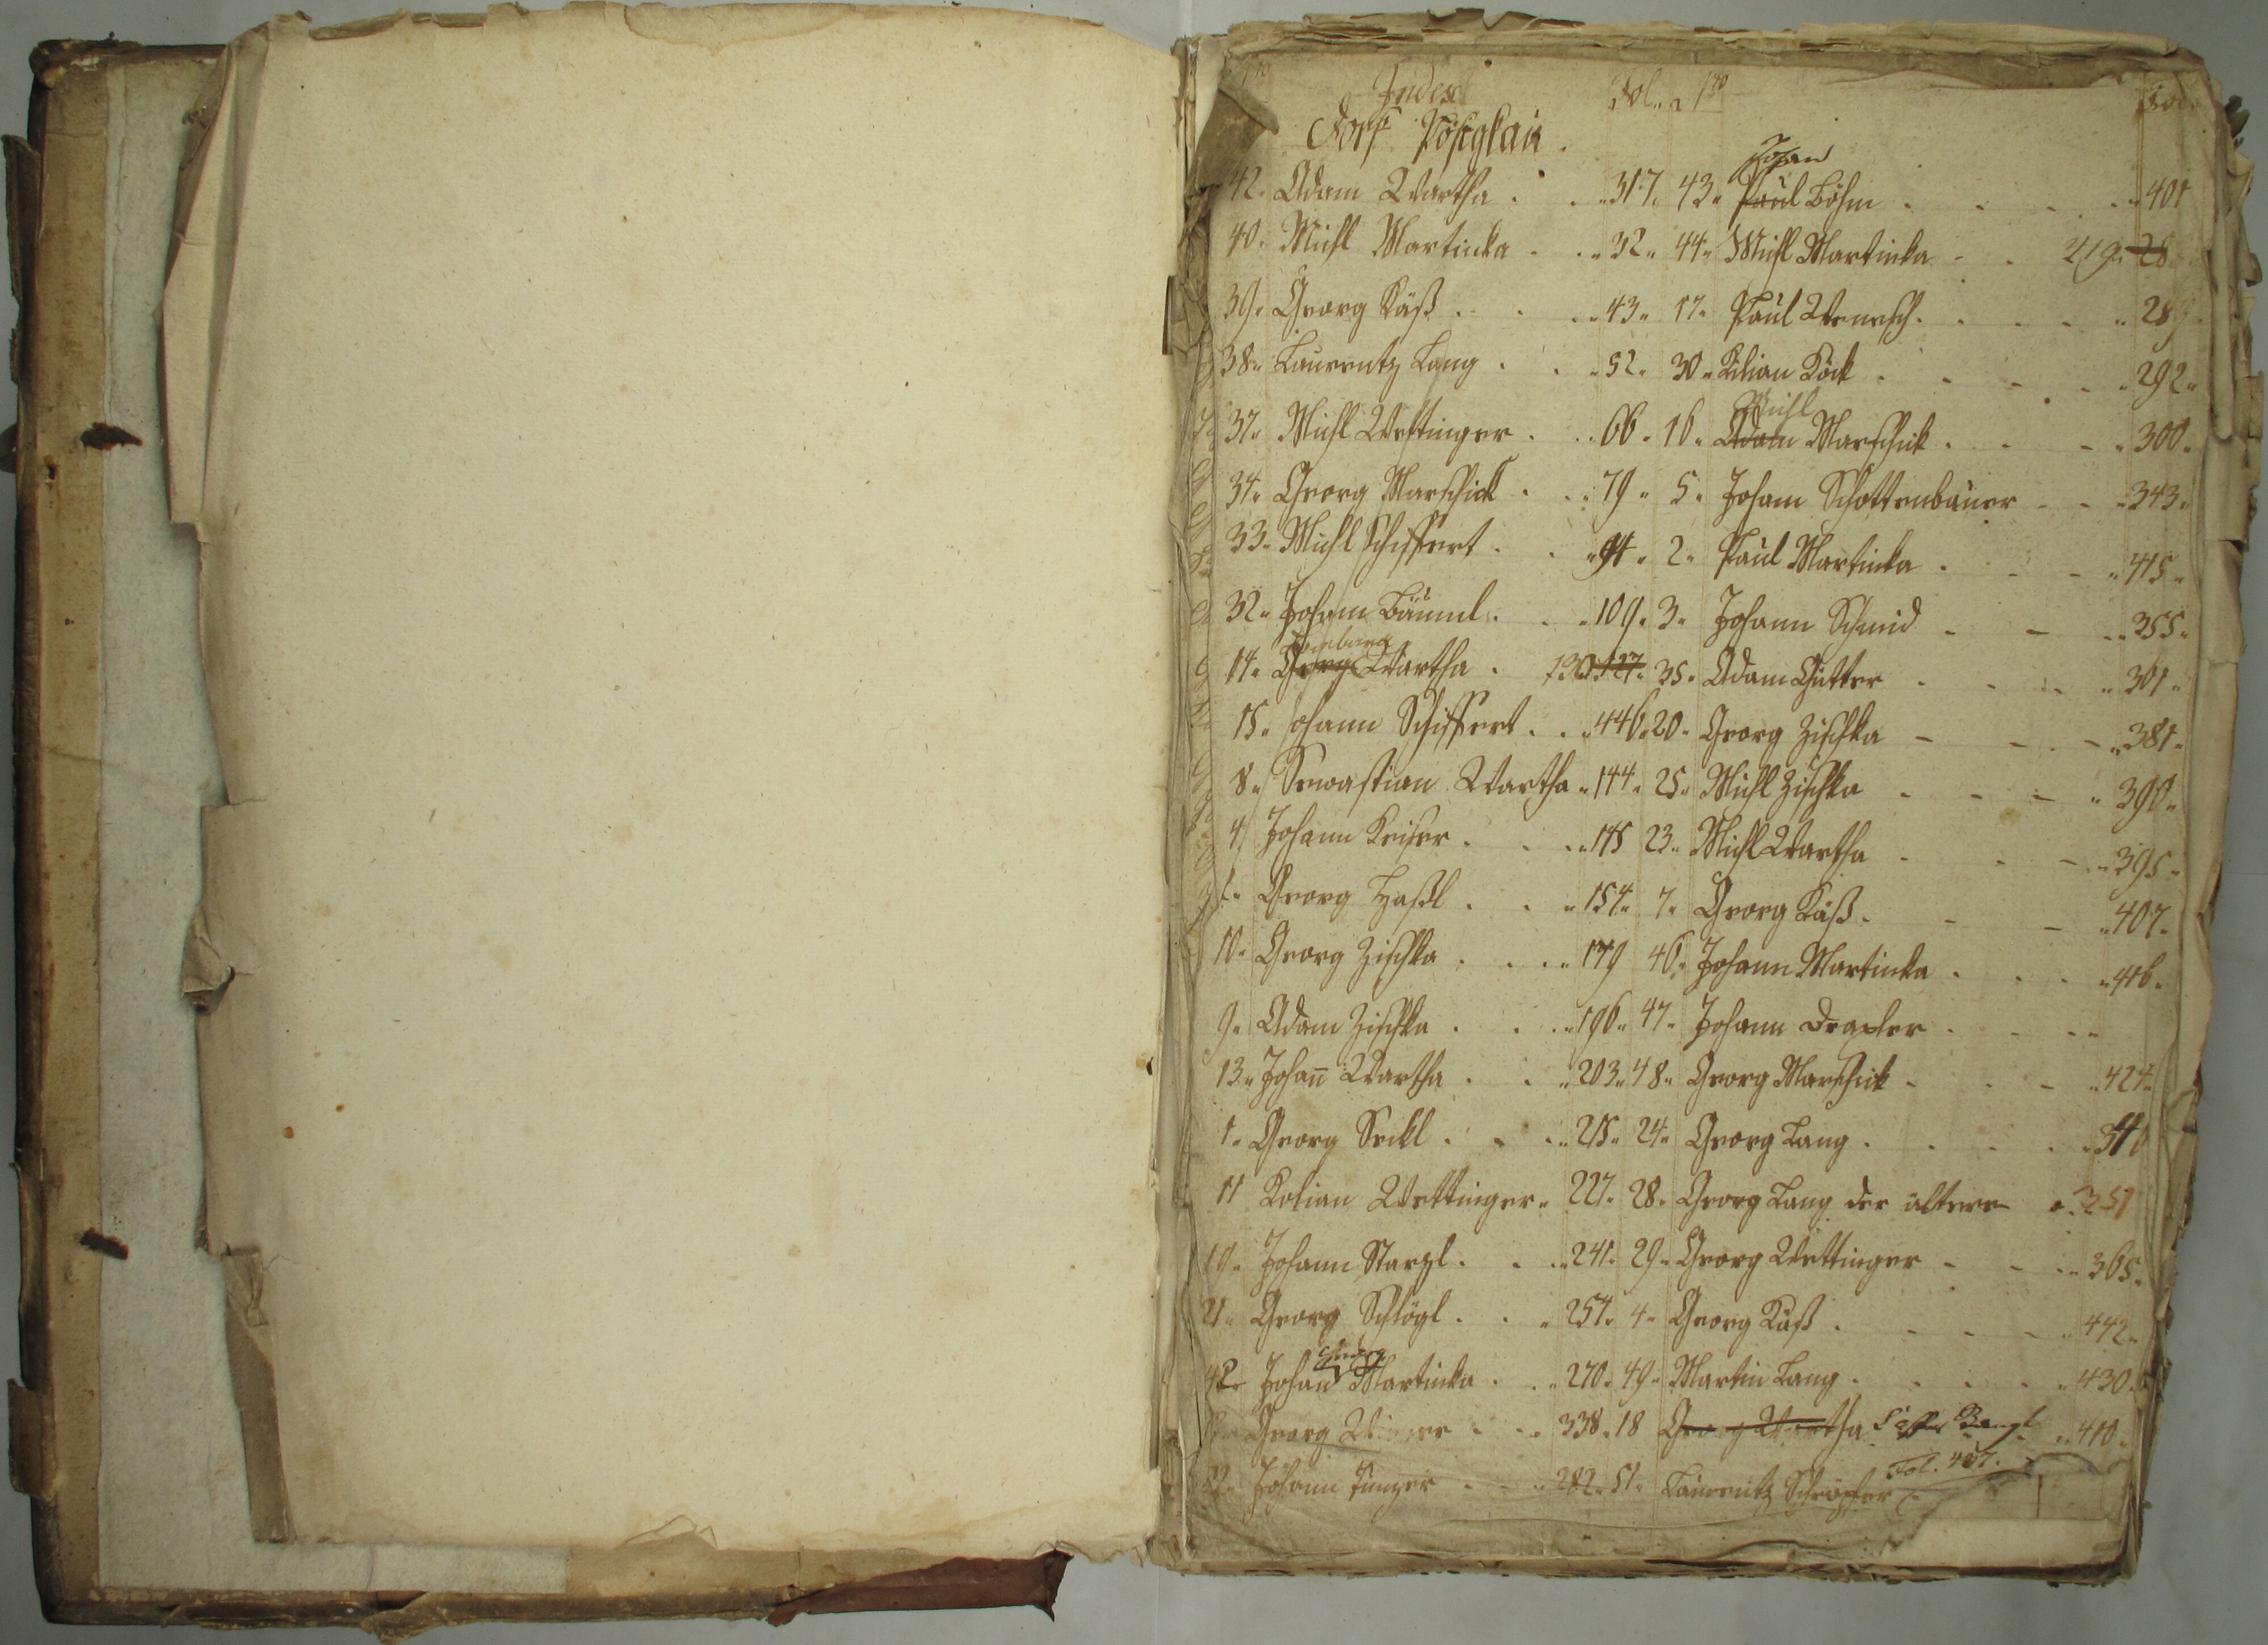 Index
Fol.
Dorf Pößigkau.
42. Adam Wartha . . 317.
40. Michl Martinka . . 32.
39. Georg Käß . . . 43.
38. Laurentz Lang . . 52.
37. Michl Wettinger . . 66.
34. Georg Marschick . . 79.
33. Michl Schiffert . . 94.
32. Johann Bäuml . . 109.
14. Georg Wartha . 130. 127.
15. Johann Schiffert . . 446.
8. Sewastian Wartha 144.
4. Johann Keiser . . . 145
Georg Haßl . . 154.
10. Georg Zischka . . . 179
9. Adam Zischka . . . 196.
13. Johañ Wartha . . 203.
1. Georg Seckl . . . 215.
11 Kilian Wettinger 227.
19. Johann Starzl . . . 241.
21. Georg Schlögl . . . 254.
Georg
42. Johan Martinka . . 270.
Georg . . 338.
Johann Tinzer . . . 282.
Fol.
Johan
43. Paul Böhm . . . . 401
44. Michl Martinka . . 419. 28
17. Paul Wenesch . . . . 289.
30. Kilian Böck . . . . 292.
Michl
16. Adam Marschick . . . 300.
5. Johann Schottenbauer . . 343.
2. Paul Martinka . . . 415.
3. Johann Schmid . . . 355.
35. Adam Gütter . . . 361.
20. Georg Zischka . . . 381.
25. Michl Zischka . . . 390.
23. Michl Wartha . . . 395.
7. Georg Käß . . . 407.
46. Johann Martinka . . . 416.
47. Johann Drachsler . . .
48. Georg Marschick . . . 424.
24. Georg Lang . . . .
28. Georg Lang der ältere . 351
29. Georg Wettinger . . . 365.
4. Georg Käß . . . . 442.
49. Martin Lang . . . . 430.
18 Georg Wartha . . 410.
Fol. 457.
51. Laurentz Schröpfer